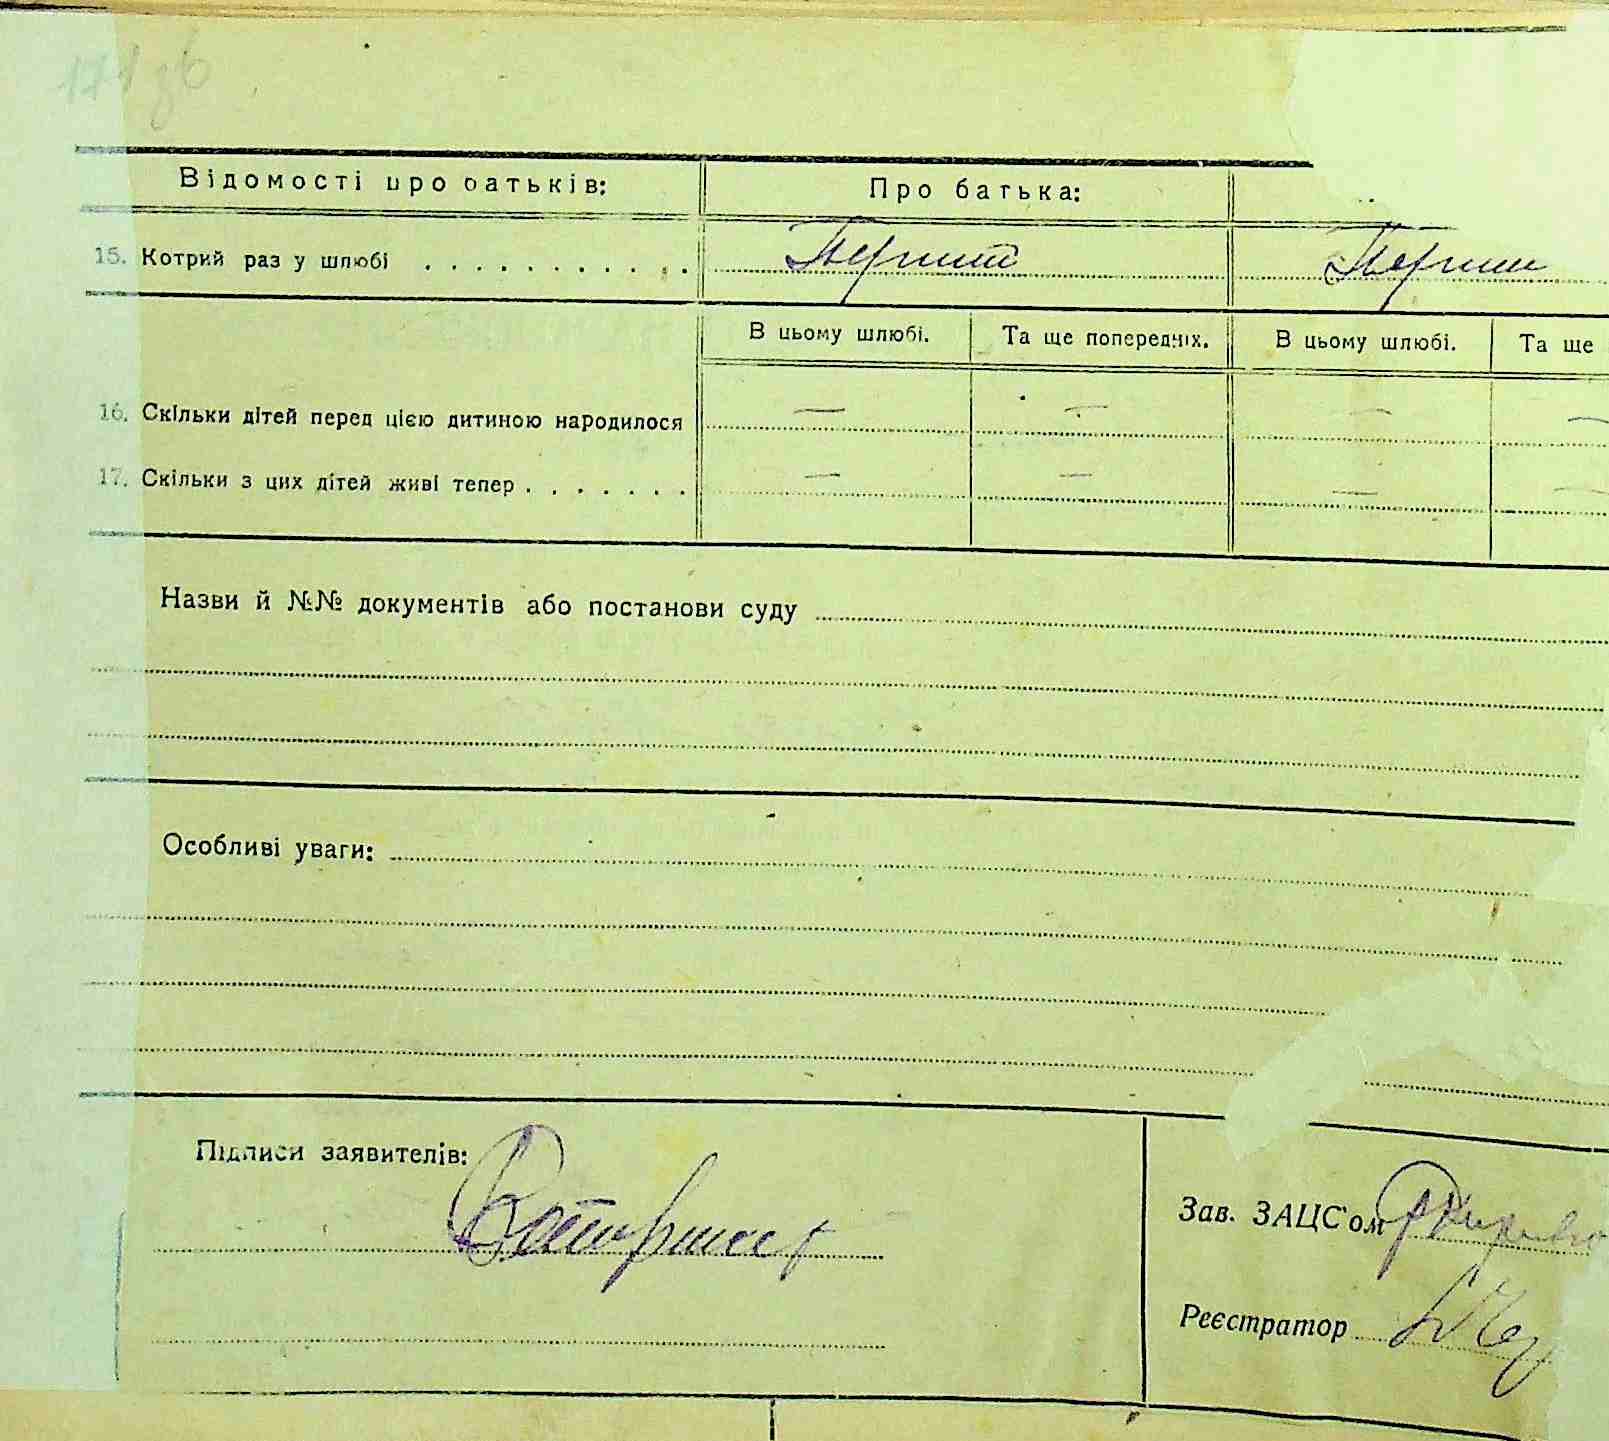 171 зв
Відомості про батьків: Про батька:
15. Котрий раз у шлюбі Перший Перший
В цьому шлюбі. Та ще попередніх. В цьому шлюбі. Та ще
16. Скільки дітей перед цією дитиною народилося — — — —
17. Скільки з цих дітей живі тепер — — — —
Назви й №№ документів або постанови суду
Особливі уваги:
Підписи заявителів:
Зав. ЗАЦС'ом
Реєстратор